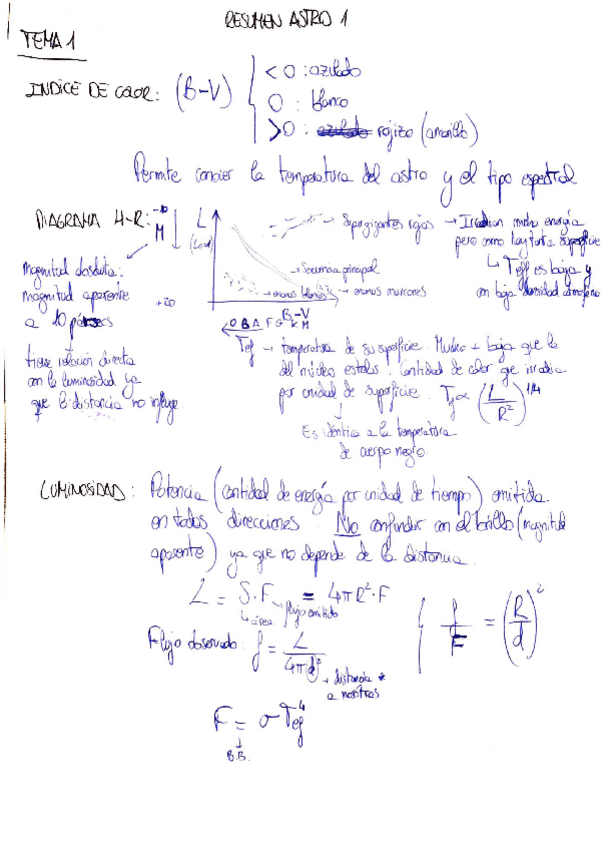 RESUMEN ASTRO 1
TEMA 1
INDICE DE COLOR: (B-V)
< 0 : azulado
0 : blanco
>0 : azulado rojizo (amarillo)
Permite conocer la temperatura del astro y el tipo espectral
DIAGRAMA H-R:
-10
M
+20
L
B-V
O B A F G K M
Supergigantes rojas → Irradian mucha energía
pero como hay tanta superficie
↳ Teff es baja y
con baja densidad
→ Secuencia principal
→ enanas blancas
→ enanas marrones
magnitud absoluta:
magnitud aparente
a 10 pársecs
↓
tiene relación directa
con la luminosidad ya
que la distancia no influye.
Tef → temperatura de su superficie. Mucho + baja que la
del núcleo estelar. Cantidad de calor que irradia
por unidad de superficie. Tef ∝ (L/R²)^1/4
↓
Es idéntica a la temperatura
de cuerpo negro
LUMINOSIDAD: Potencia (cantidad de energía por unidad de tiempo) emitida
en todas direcciones. No confundir con el brillo (magnitud
aparente) ya que no depende de la distancia.
L = S·F = 4πR²·F
↳ área
↳ flujo emitido
Flujo observado: f = L/4πd²
→ distancia *
a nosotros
f/F = (R/d)²
F = σ Tef⁴
↓
B.B.